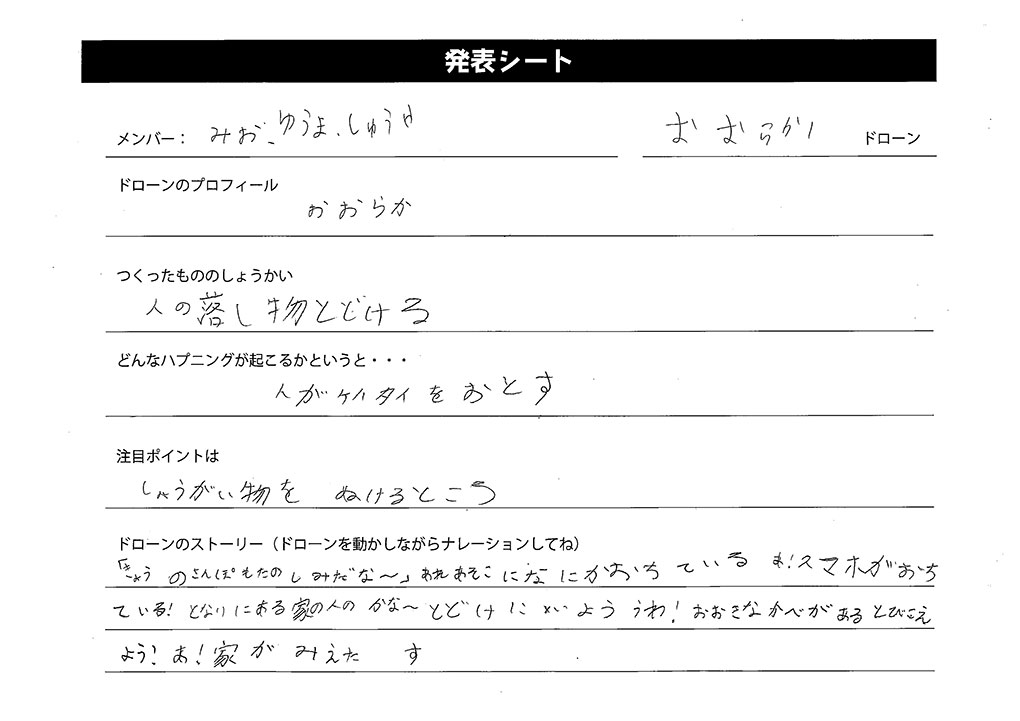 発表シート
メンバー： みお、ゆうま、しゅうや
おむらかり ドローン
ドローンのプロフィール
おおらか
つくったもののしょうかい
人の落し物とどける
どんなハプニングが起こるかというと・・・
人がケイタイをおとす
注目ポイントは
しょうがい物を ぬけるところ
ドローンのストーリー（ドローンを動かしながらナレーションしてね）
「きょうのさんぽもたのしみだな〜」あれあそこになにかおちている あ!スマホがおち
ている! となりにある家の人のかな〜とどけにいこう うわ! おおきなかべがあるとびこえ
よう! あ!家がみえた す